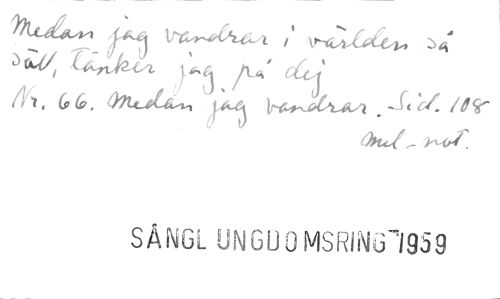 Medan jag vandrar i världen så
säll, tänker jag på dig
Nr. 66. Medan jag vandrar. Sid. 108
mel-not.
SÅNGL UNGDOMSRING 1959